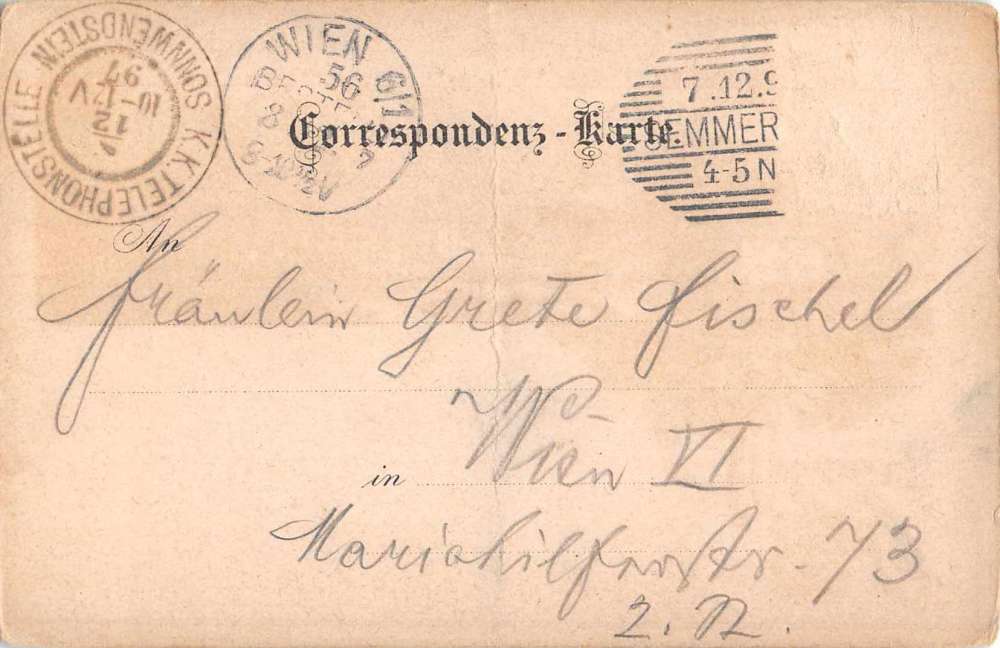 K.K. TELEPHONSTELLE SONNWENDSTEIN
7/12
10-12V
97
WIEN 6/1
56
8
7.12.9
SEMMER
4-5 N
Correspondenz-Karte.
An
Fräulein Grete Fischel
in Wien VI
Mariahilferstr. 73
2.